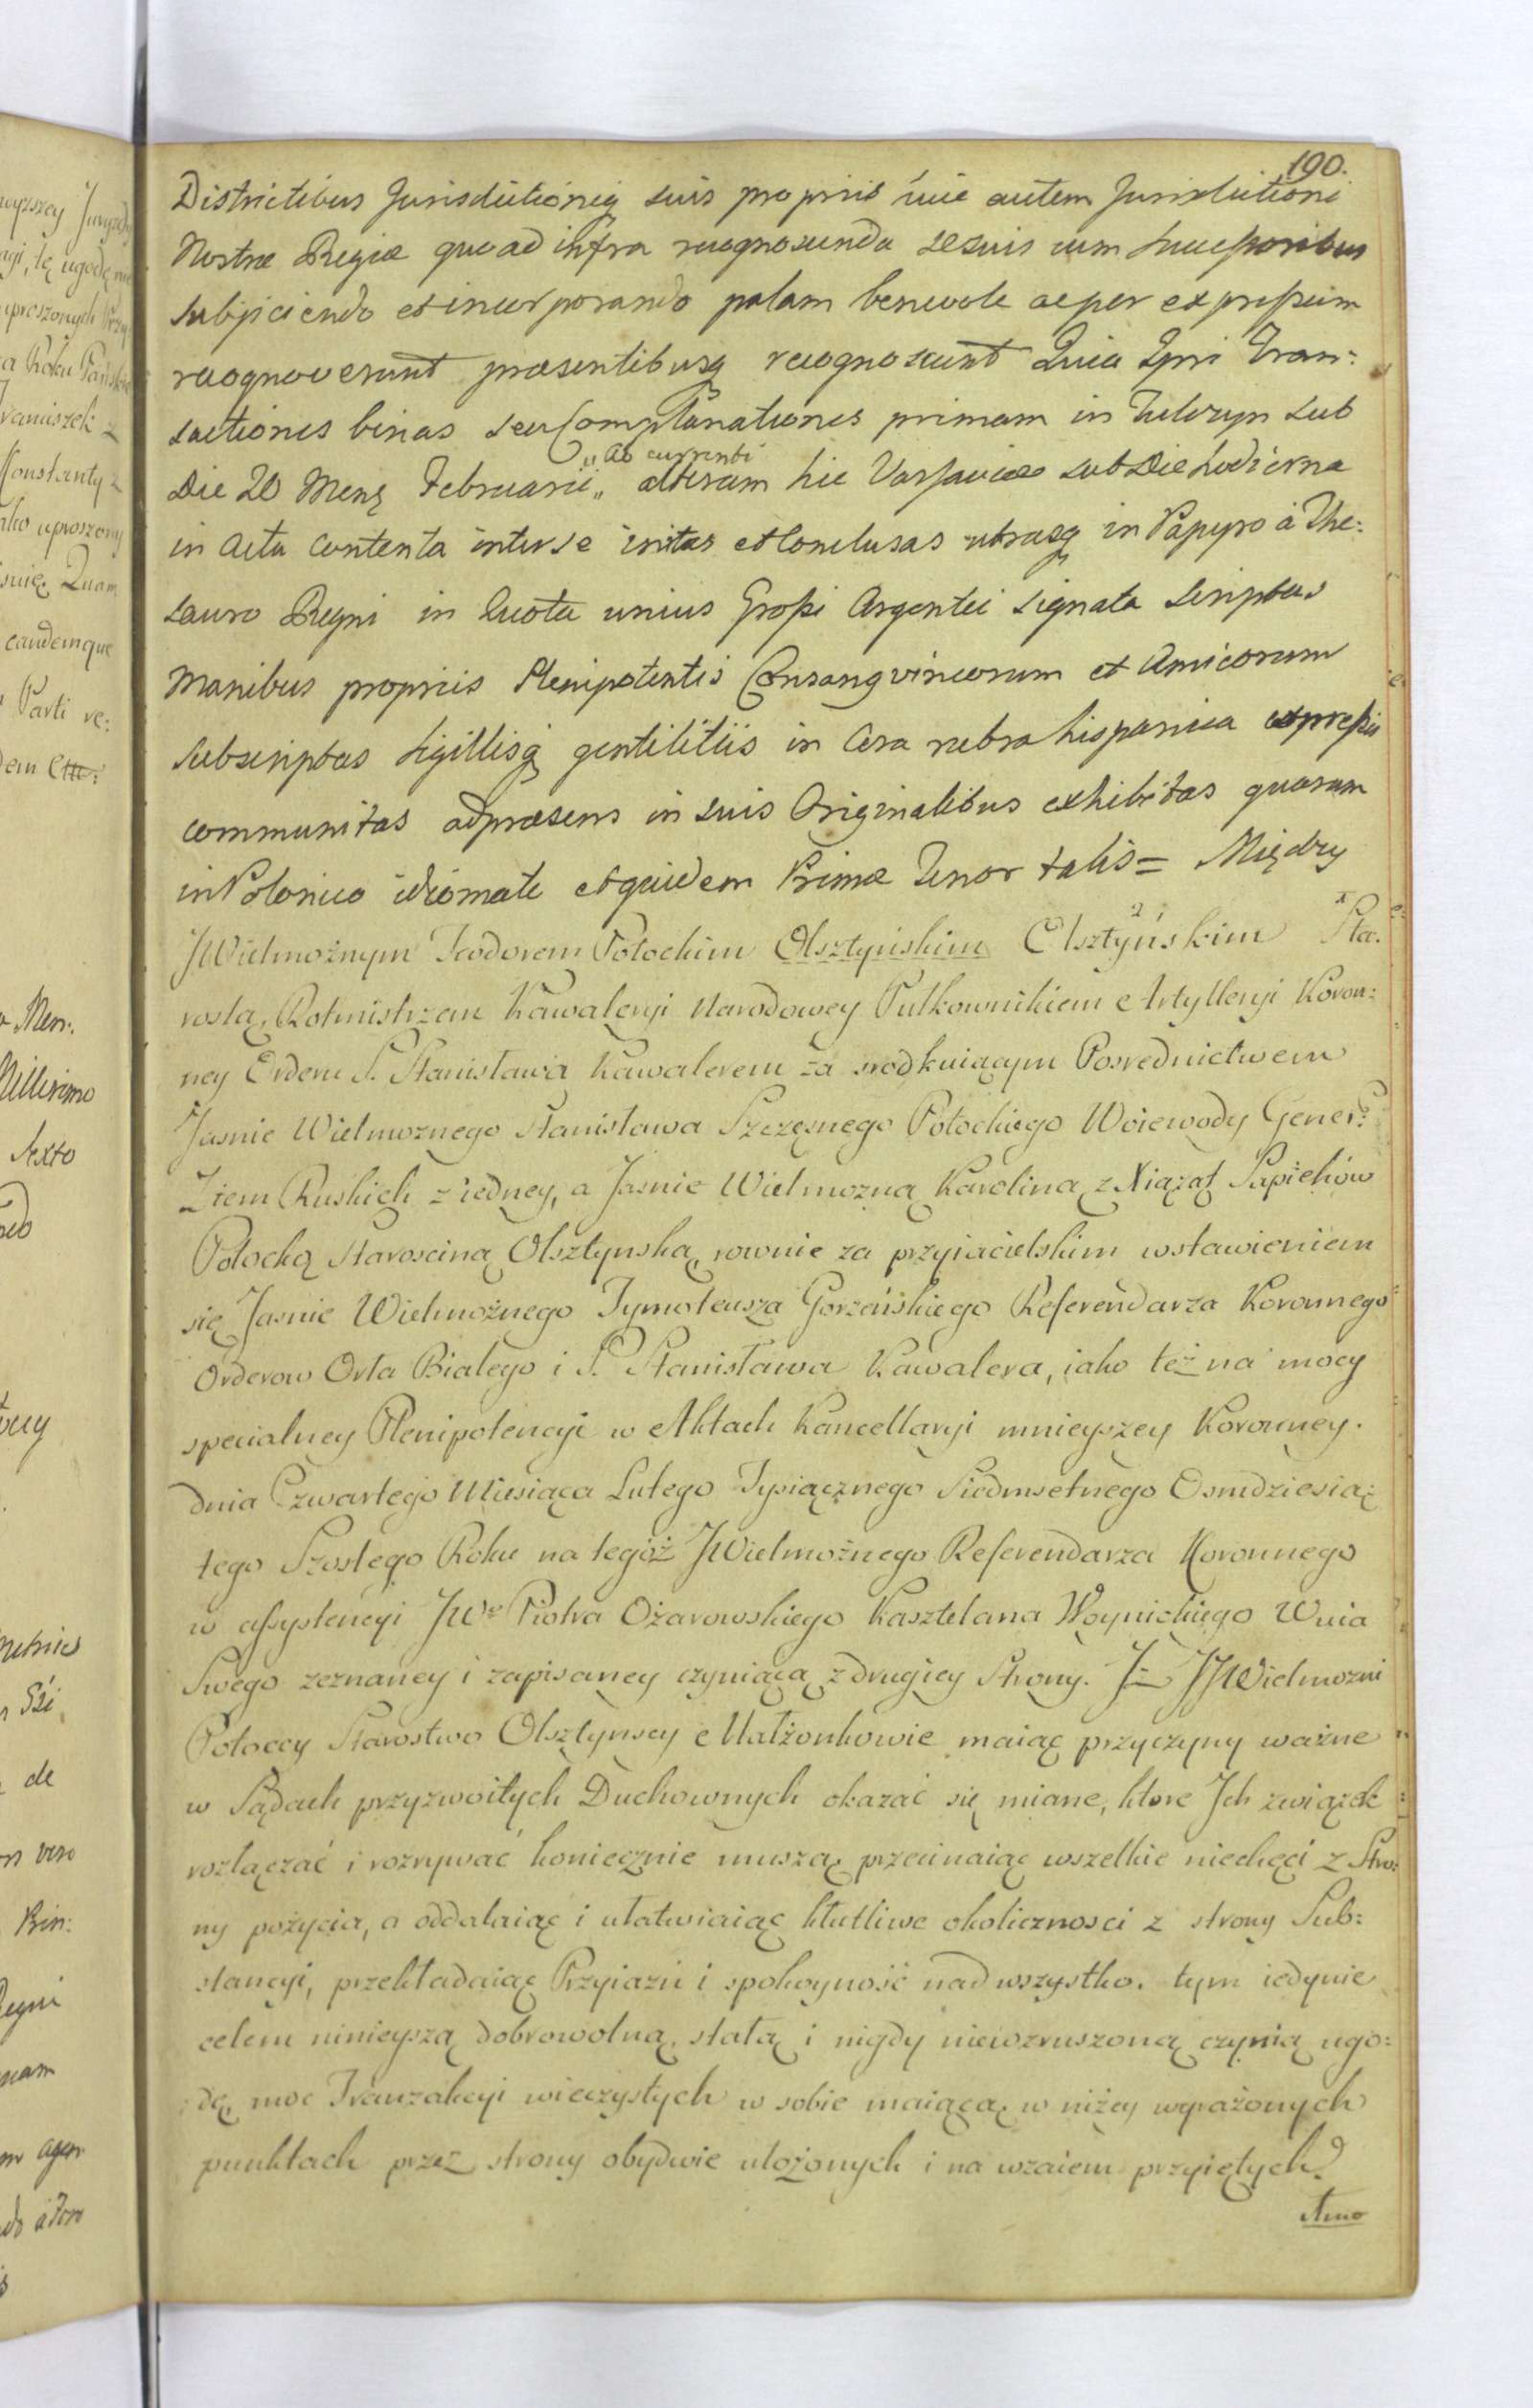 190.
Districtibus Jurisdictioniq suis propriis huic autem Jurisdictioni
Nostræ Regiæ quoad infra recognoscenda se suis cum Successoribus
subijciendo et incorporando palam benevole ac per expressum
recognoverunt præsentibusq recognoscunt Quia Ipsi Tran:
sactiones binas seu Complanationes primam in Tulczyn sub
Die 20 Mens Februarii „ ad currenti alteram hic Varsaviæ sub Die hodierna
in Actu contenta inter se initas et conclusas utrasq in Papyro à The:
sauro Regni in Quota unius Grossi Argentei signata scriptas
Manibus propriis Plenipotentis Consangvineorum et Amicorum
subscriptas Sigillisq gentilitiis in Cera rubra hispanica expressis
communitas ad præsens in suis Originalibus exhibitas quarum
in Polonico idiomate et quidem Primæ Tenor talis = Między
JWielmożnym Teodorem Potockim Olsztyńskim Olsztyńskim Sta.
rostą, Rotmistrzem Kawaleryi Narodowey Pułkownikiem Artylleryi Koron:
ney Orderu S. Stanisława Kawalerem za srodkuiącym Posrednictwem
Jasnie Wielmożnego Stanisława Szczęsnego Potockiego Woiewody Gener:
Ziem Ruskich z iedney, a Jasnie Wielmożną Karoliną z Xiążąt Sapiehów
Potocką Starosciną Olsztynską, rownie za przyiacielskim wstawieniem
się Jasnie Wielmożnego Tymoteusza Gorzeńskiego Referendarza Koronnego
Orderow Orła Białego i S. Stanisława Kawalera, iako też na mocy
specialney Plenipotencyi w Aktach Kancellaryi mnieyszey Koronney.
dnia Czwartego Miesiąca Lutego Tysiącznego Siedmsetnego Osmdziesią:
tego Szostego Roku na tegoż JWielmożnego Referendarza Koronnego
w assystencyi JWo Piotra Ożarowskiego Kasztelana Woynickiego Wuia
Swego zeznaney i zapisaney czyniącą z drugiey Strony. Iż JJWielmożni
Potoccy Starostwo Olsztynscy Małżonkowie maiąc przyczyny ważne
w Sądach przyzwoitych Duchownych okazać się miane, ktore Ich związek
rozłączać i rozrywać koniecznie muszą, przecinaiąc wszelkie niechęci z Stro:
ny pożycia, a oddalaiąc i ułatwiaiąc kłutliwe okolicznosci z strony Sub:
stancyi, przekładaiąc Przyiaźń i spokoyność nad wszystko. tym iedynie
celem ninieyszą dobrowolną, stałą i nigdy niewzruszoną czynią ugo:
dę, moc Tranzakcyi wieczystych w sobie maiącą, w niżey wyrażonych
punktach przez strony obydwie ułożonych i na wzaiem przyiętych.
Amo